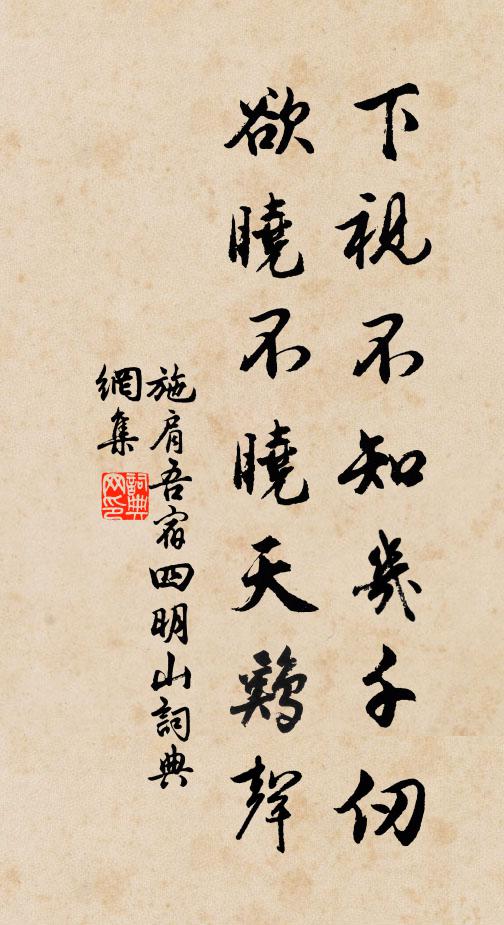 下視不知幾千仞
欲曉不曉天鷄聲
施肩吾宿四明山詞典
網集
詞典
网印